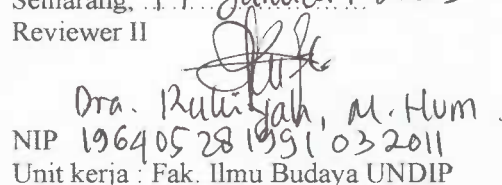 Semarang,
Reviewer II
Dra. Rukiyah, M. Hum
NIP 196405281991032011
Unit kerja : Fak. Ilmu Budaya UNDIP